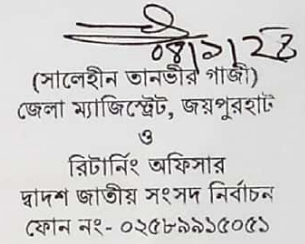 ০৪/১/২৪
(সালেহীন তানভীর গাজী)
জেলা ম্যাজিস্ট্রেট, জয়পুরহাট
ও
রিটার্নিং অফিসার
দ্বাদশ জাতীয় সংসদ নির্বাচন
ফোন নং- ০২৫৮৯৯১৫০৫১